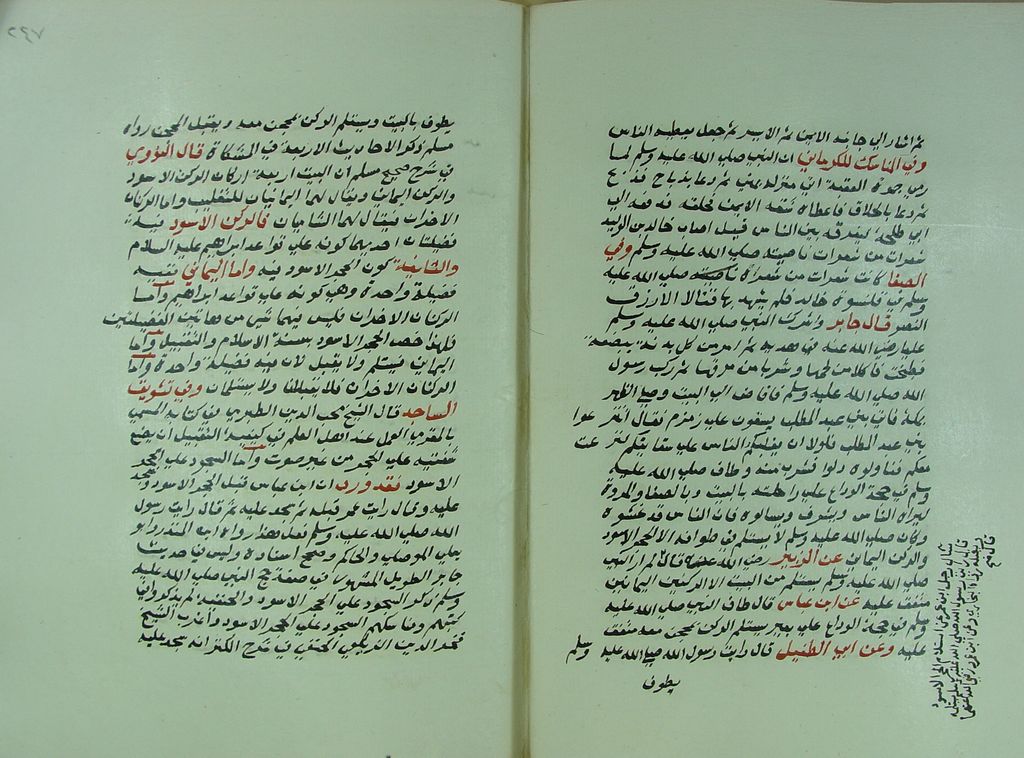 ثم اشار الي جانبه الايمن ثم الايسر ثم جعل يعطيه الناس
وفي المناسك للكرماني ان النبي صلي الله عليه وسلم لما
رمي جمرة العقبة اتي منزله بمني ثم دعا بذباح فذبح
ثم دعا بالحلاق فاعطاه شقه الايمن فحلقه فدفعه الي
ابي طلحة ليفرقه بين الناس قيل اصاب خالد بن الوليد
شعرات من شعرات ناصيته صلي الله عليه وسلم وفي
الصفا كانت شعرات من شعراة ناصيته صلي الله عليه
وسلم في قلنسوة خالد فلم يشهد بها قتالا الا رزق
النصر قال جابر واشرك النبي صلي الله عليه وسلم
عليا رضي الله عنه في هديه ثم امر من كل بدنة ببضعة
فطبخت فاكلا من لحمها وشربا من مرقها ثم ركب رسول
الله صلي الله عليه وسلم فافاض الي البيت وصلي الظهر
بمكة فاتي بني عبد المطلب يسقون علي زمزم فقال انزعوا
بني عبد المطلب فلولا ان يغلبكم الناس علي سقايتكم لنزعت
معكم فناولوه دلوا فشرب منه وطاف صلي الله عليه
وسلم في حجة الوداع علي راحلته بالبيت وبالصفا والمروة
ليراه الناس وليشرف وليسالوه فان الناس قد غشوه
وكان صلي الله عليه وسلم لا يستلم في طوافه الا الحجر الاسود
والركن اليماني عن الزبير رضي الله عنه قال لم ار النبي
صلي الله عليه وسلم يستلم من البيت الا الركنين اليمانيين
متفق عليه عن ابن عباس قال طاف النبي صلي الله عليه
وسلم في حجة الوداع علي بعير يستلم الركن بمحجن معه متفق
عليه وعن ابي الطفيل قال رايت رسول الله صلي الله عليه وسلم
يطوف
٢٩٧
يطوف بالبيت ويستلم الركن بمحجن معه ويقبل المحجن رواه
مسلم ذكر الاحاديث الاربعة في المشكاة قال النووي
في شرح صحيح مسلم ان للبيت اربعة اركان الركن الاسود
والركن اليماني ويقال لهما اليمانيان للتغليب واما الركنان
الاخران فيقال لهما الشاميان فالركن الاسود فيه
فضيلتان احديهما كونه علي قواعد ابراهيم عليه السلام
والثانية كون الحجر الاسود فيه واما اليماني ففيه
فضيلة واحدة وهي كونه علي قواعد ابراهيم واما
الركنان الاخران فليس فيهما شي من هاتين الفضيلتين
فلهذا خص الحجر الاسود بسنة الاستلام والتقبيل واما
اليماني فيستلم ولا يقبل لان فيه فضيلة واحدة واما
الركنان الاخران فلا يقبلان ولا يستلمان وفي تشويق
الساجد قال الشيخ محب الدين الطبري في كتابه المسمي
بالقري العمل عند اهل العلم في كيفية التقبيل ان يضع
شفتيه علي الحجر من غير صوت واما السجود علي الحجر
الاسود فقد ورد ان ابن عباس قبل الحجر الاسود وسجد
عليه وقال رايت عمر قبله ثم سجد عليه ثم قال رايت رسول
الله صلي الله عليه وسلم فعل هكذا رواه ابن المنذر وابو
يعلي الموصلي والحاكم وصحح اسناده وليس في حديث
جابر الطويل المشهور في صفة حج النبي صلي الله عليه
وسلم ذكر السجود علي الحجر الاسود والحنفية لم يذكروا في
كتبهم ومناسكهم السجود علي الحجر الاسود واغرب الشيخ
فخر الدين الزيلعي الحنفي في شرح الكنز انه سجد عليه